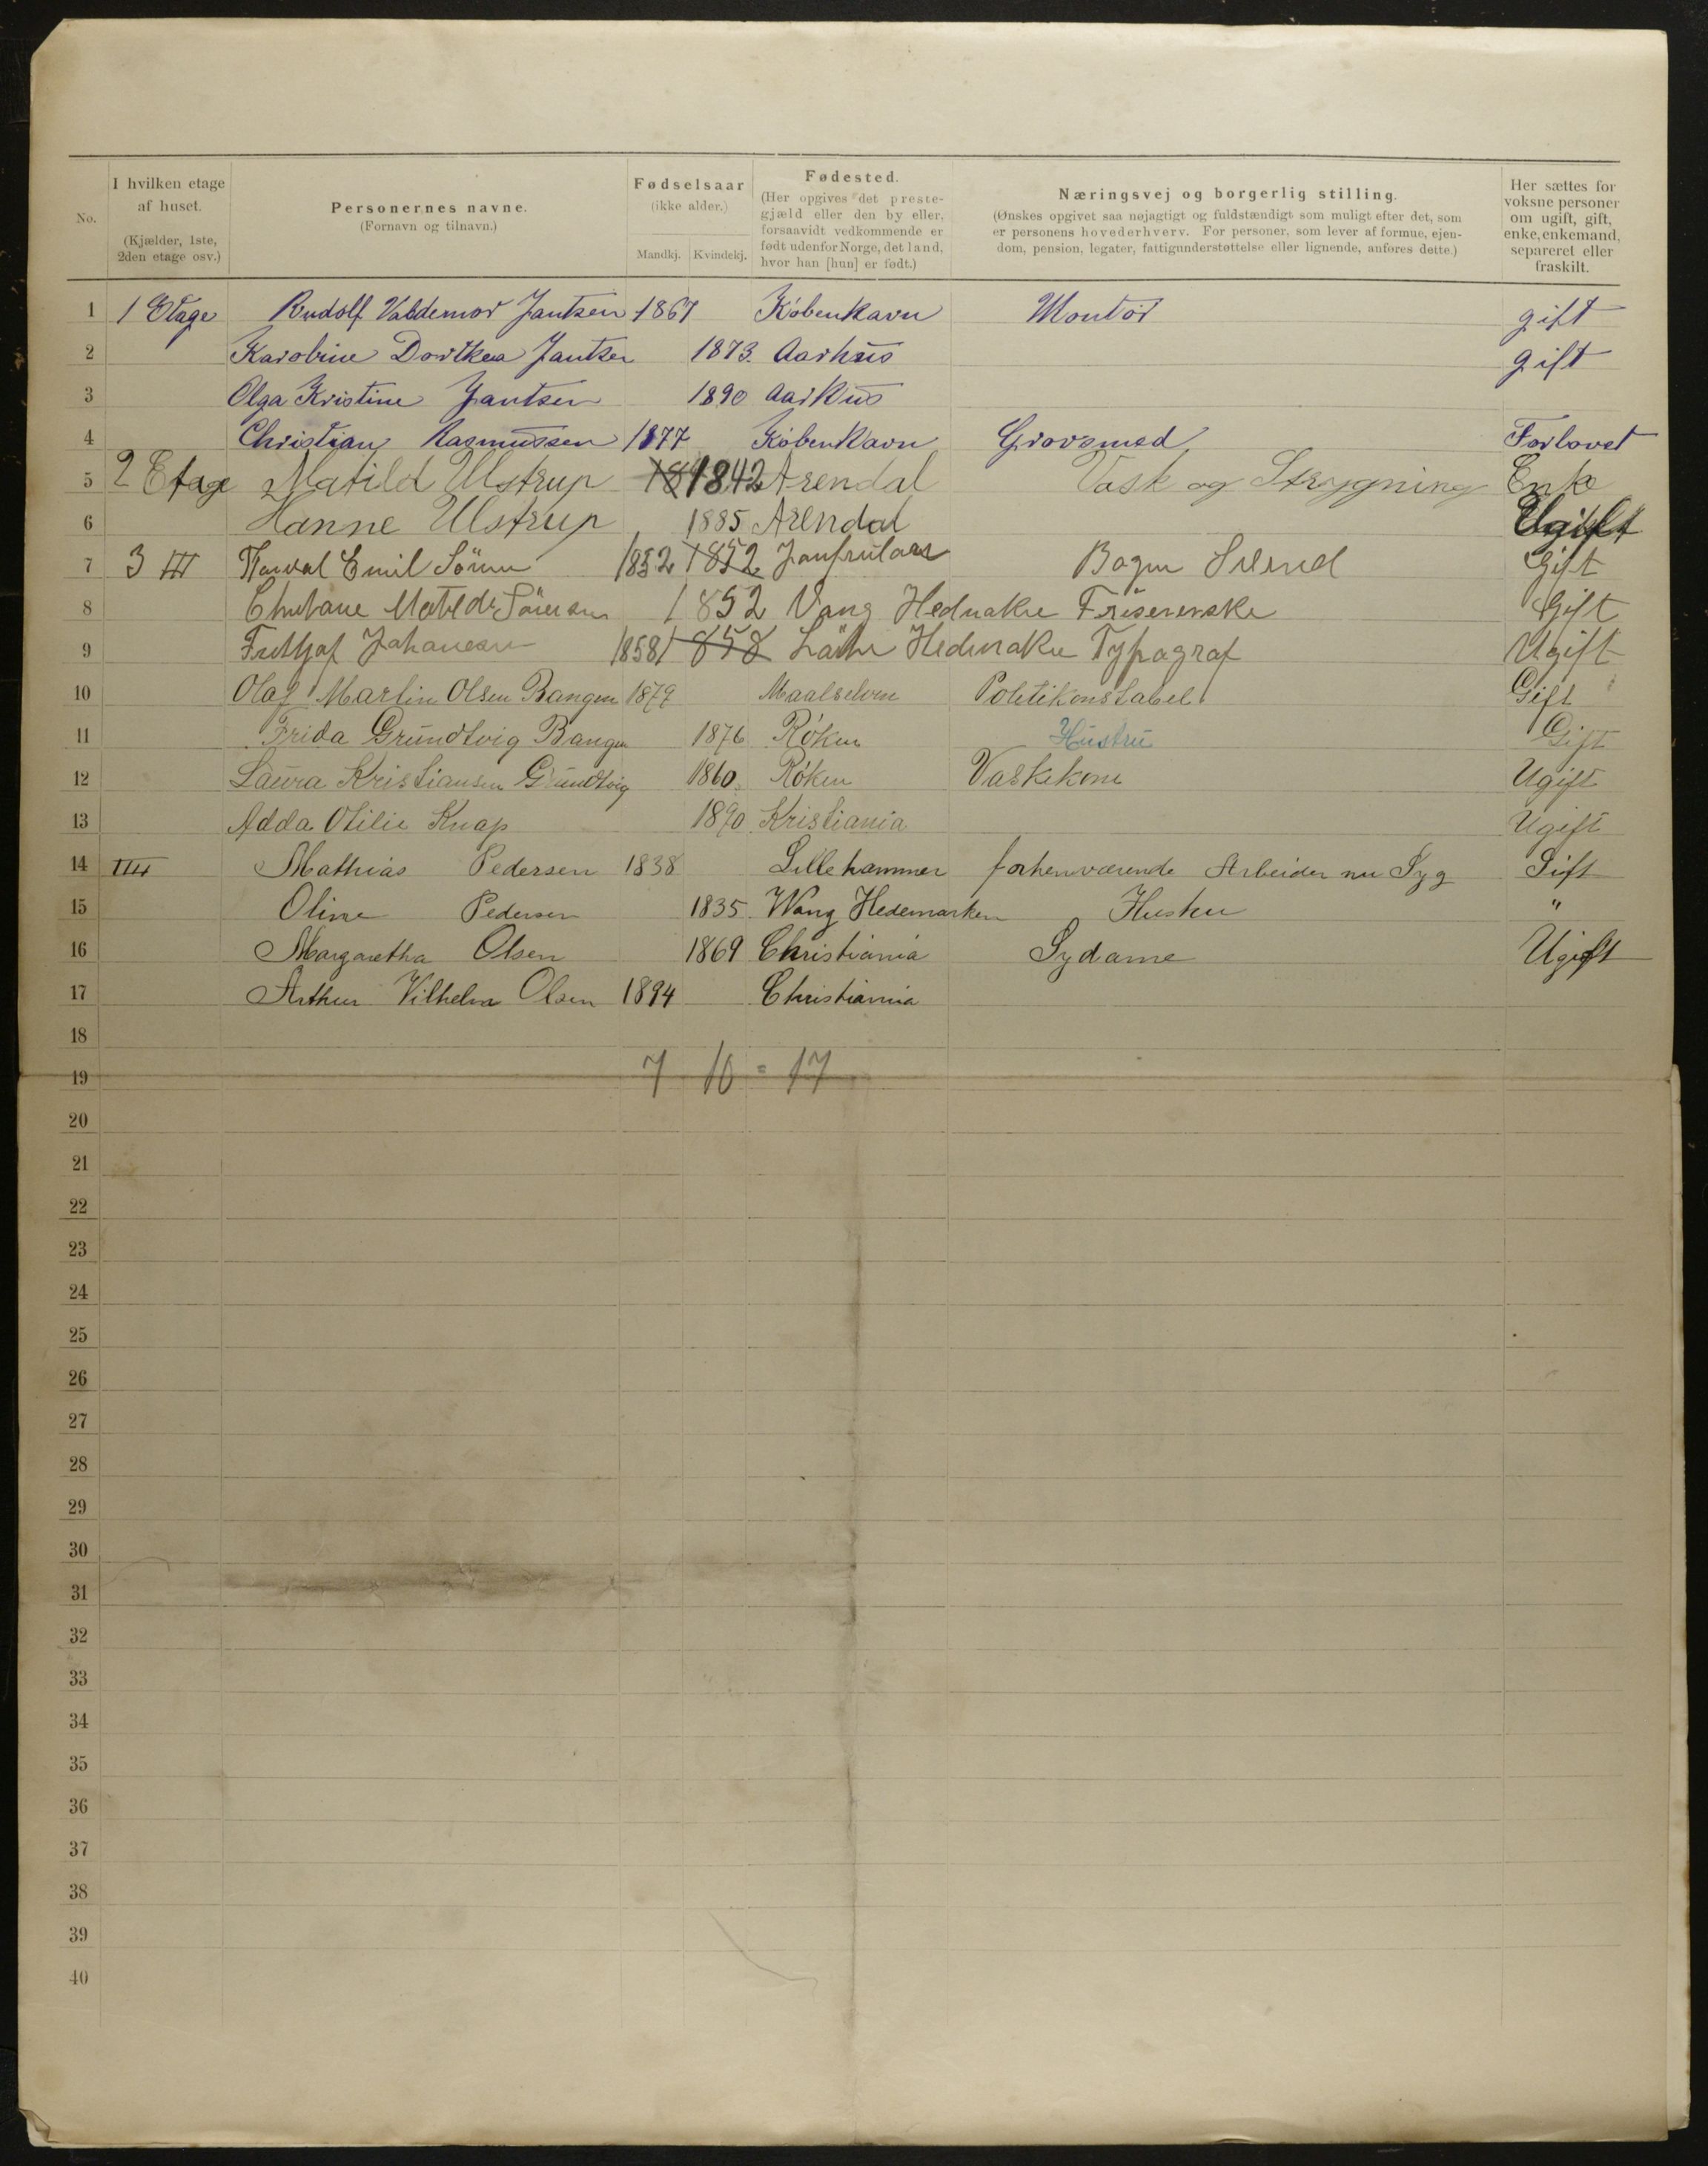 No.
I hvilken etage af huset.
(Kjælder, 1ste, 2den etage osv.)
Personernes navne.
(Fornavn og tilnavn.)
Fødselsaar
(ikke alder.)
Mandkj. Kvindekj.
Fødested.
(Her opgives det prestegjæld eller den by eller, forsaavidt vedkommende er født udenfor Norge, det land, hvor han [hun] er født.)
Næringsvej og borgerlig stilling.
(Ønskes opgivet saa nøjagtigt og fuldstændigt som muligt efter det, som er personens hovederhverv. For personer, som lever af formue, ejendom, pension, legater, fattigunderstøttelse eller lignende, anføres dette.)
Her sættes for voksne personer om ugift, gift, enke, enkemand, separeret eller fraskilt.
1 1 Etage Rudolf Valdemar Jantsen 1867 Kóbenhavn Montör gift
2 Karoline Dorthea Jantsen 1873. Aarhus gift
3 Olga Kristine Jantsen 1890 Aarhus
4 Christian Rasmussen 1877 Kóbenhavn Grovsmed Forlovet
5 2 Etage Matild Ulstrup 1842 Arendal Vask og Strygning Enke
6 Hanne Ulstrup 1885 Arendal Ugift
7 3 III Emil 1852 1852 Gift
8 Matilde Sörensen 1852 Vang Hedmaken Gift
9 Johanesen 1858 1858 Hedmaken Typograf Ugift
10 Olaf Martin Olsen Bangen 1879 Maalselven Politikonstabel Gift
11 Frida Grundtvig Bangen 1876 Röken Hustru Gift
12 Laura Kristiansen Grundtvig 1860 Röken Vaskekone Ugift
13 Adda Otilie Knap 1890 Kristiania Ugift
14 III Mathias Pedersen 1838 Lillehammer forhenværende Arbeider nu Syg Gift
15 Oline Pedersen 1835 Wang Hedemarken Hustru "
16 Margaretha Olsen 1869 Christiania Sydame Ugift
17 Arthur Vilhelm Olsen 1894 Christiania
18
19 7 10 = 17
20
21
22
23
24
25
26
27
28
29
30
31
32
33
34
35
36
37
38
39
40